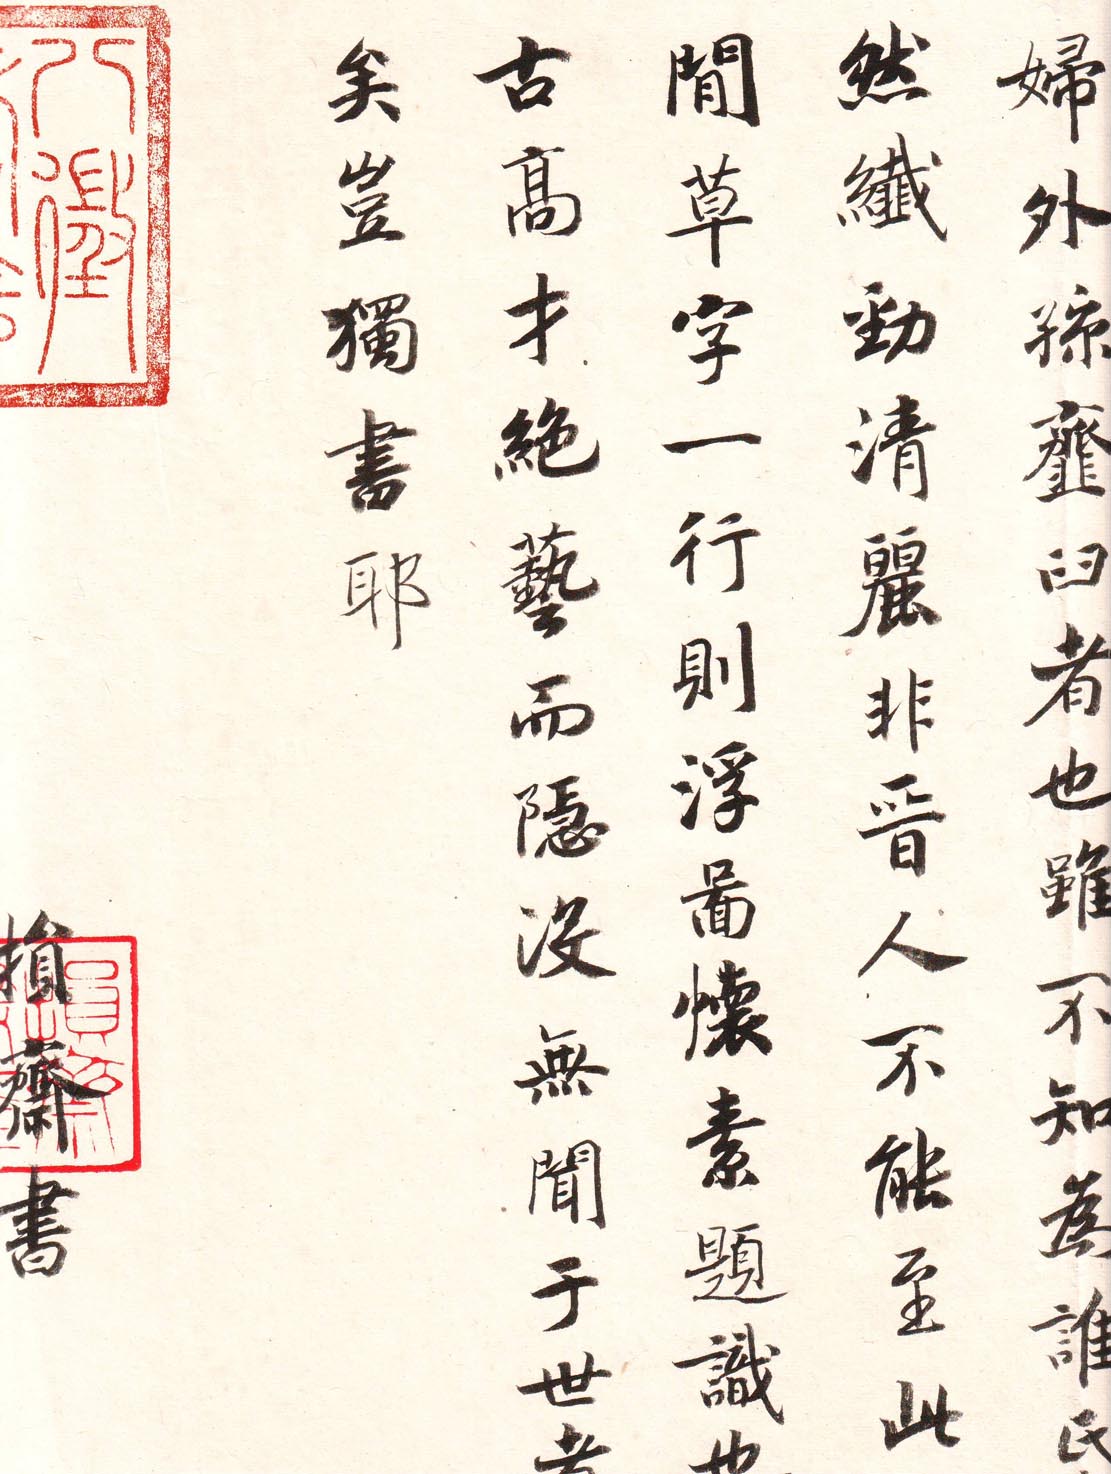 婦外孫虀臼者也雖不知為誰氏
然纖勁清麗非晉人不能至此
間草字一行則浮圖懷素題識也
古高才絶藝而隱没無聞于世者
矣豈獨書耶
損齋書
損齋